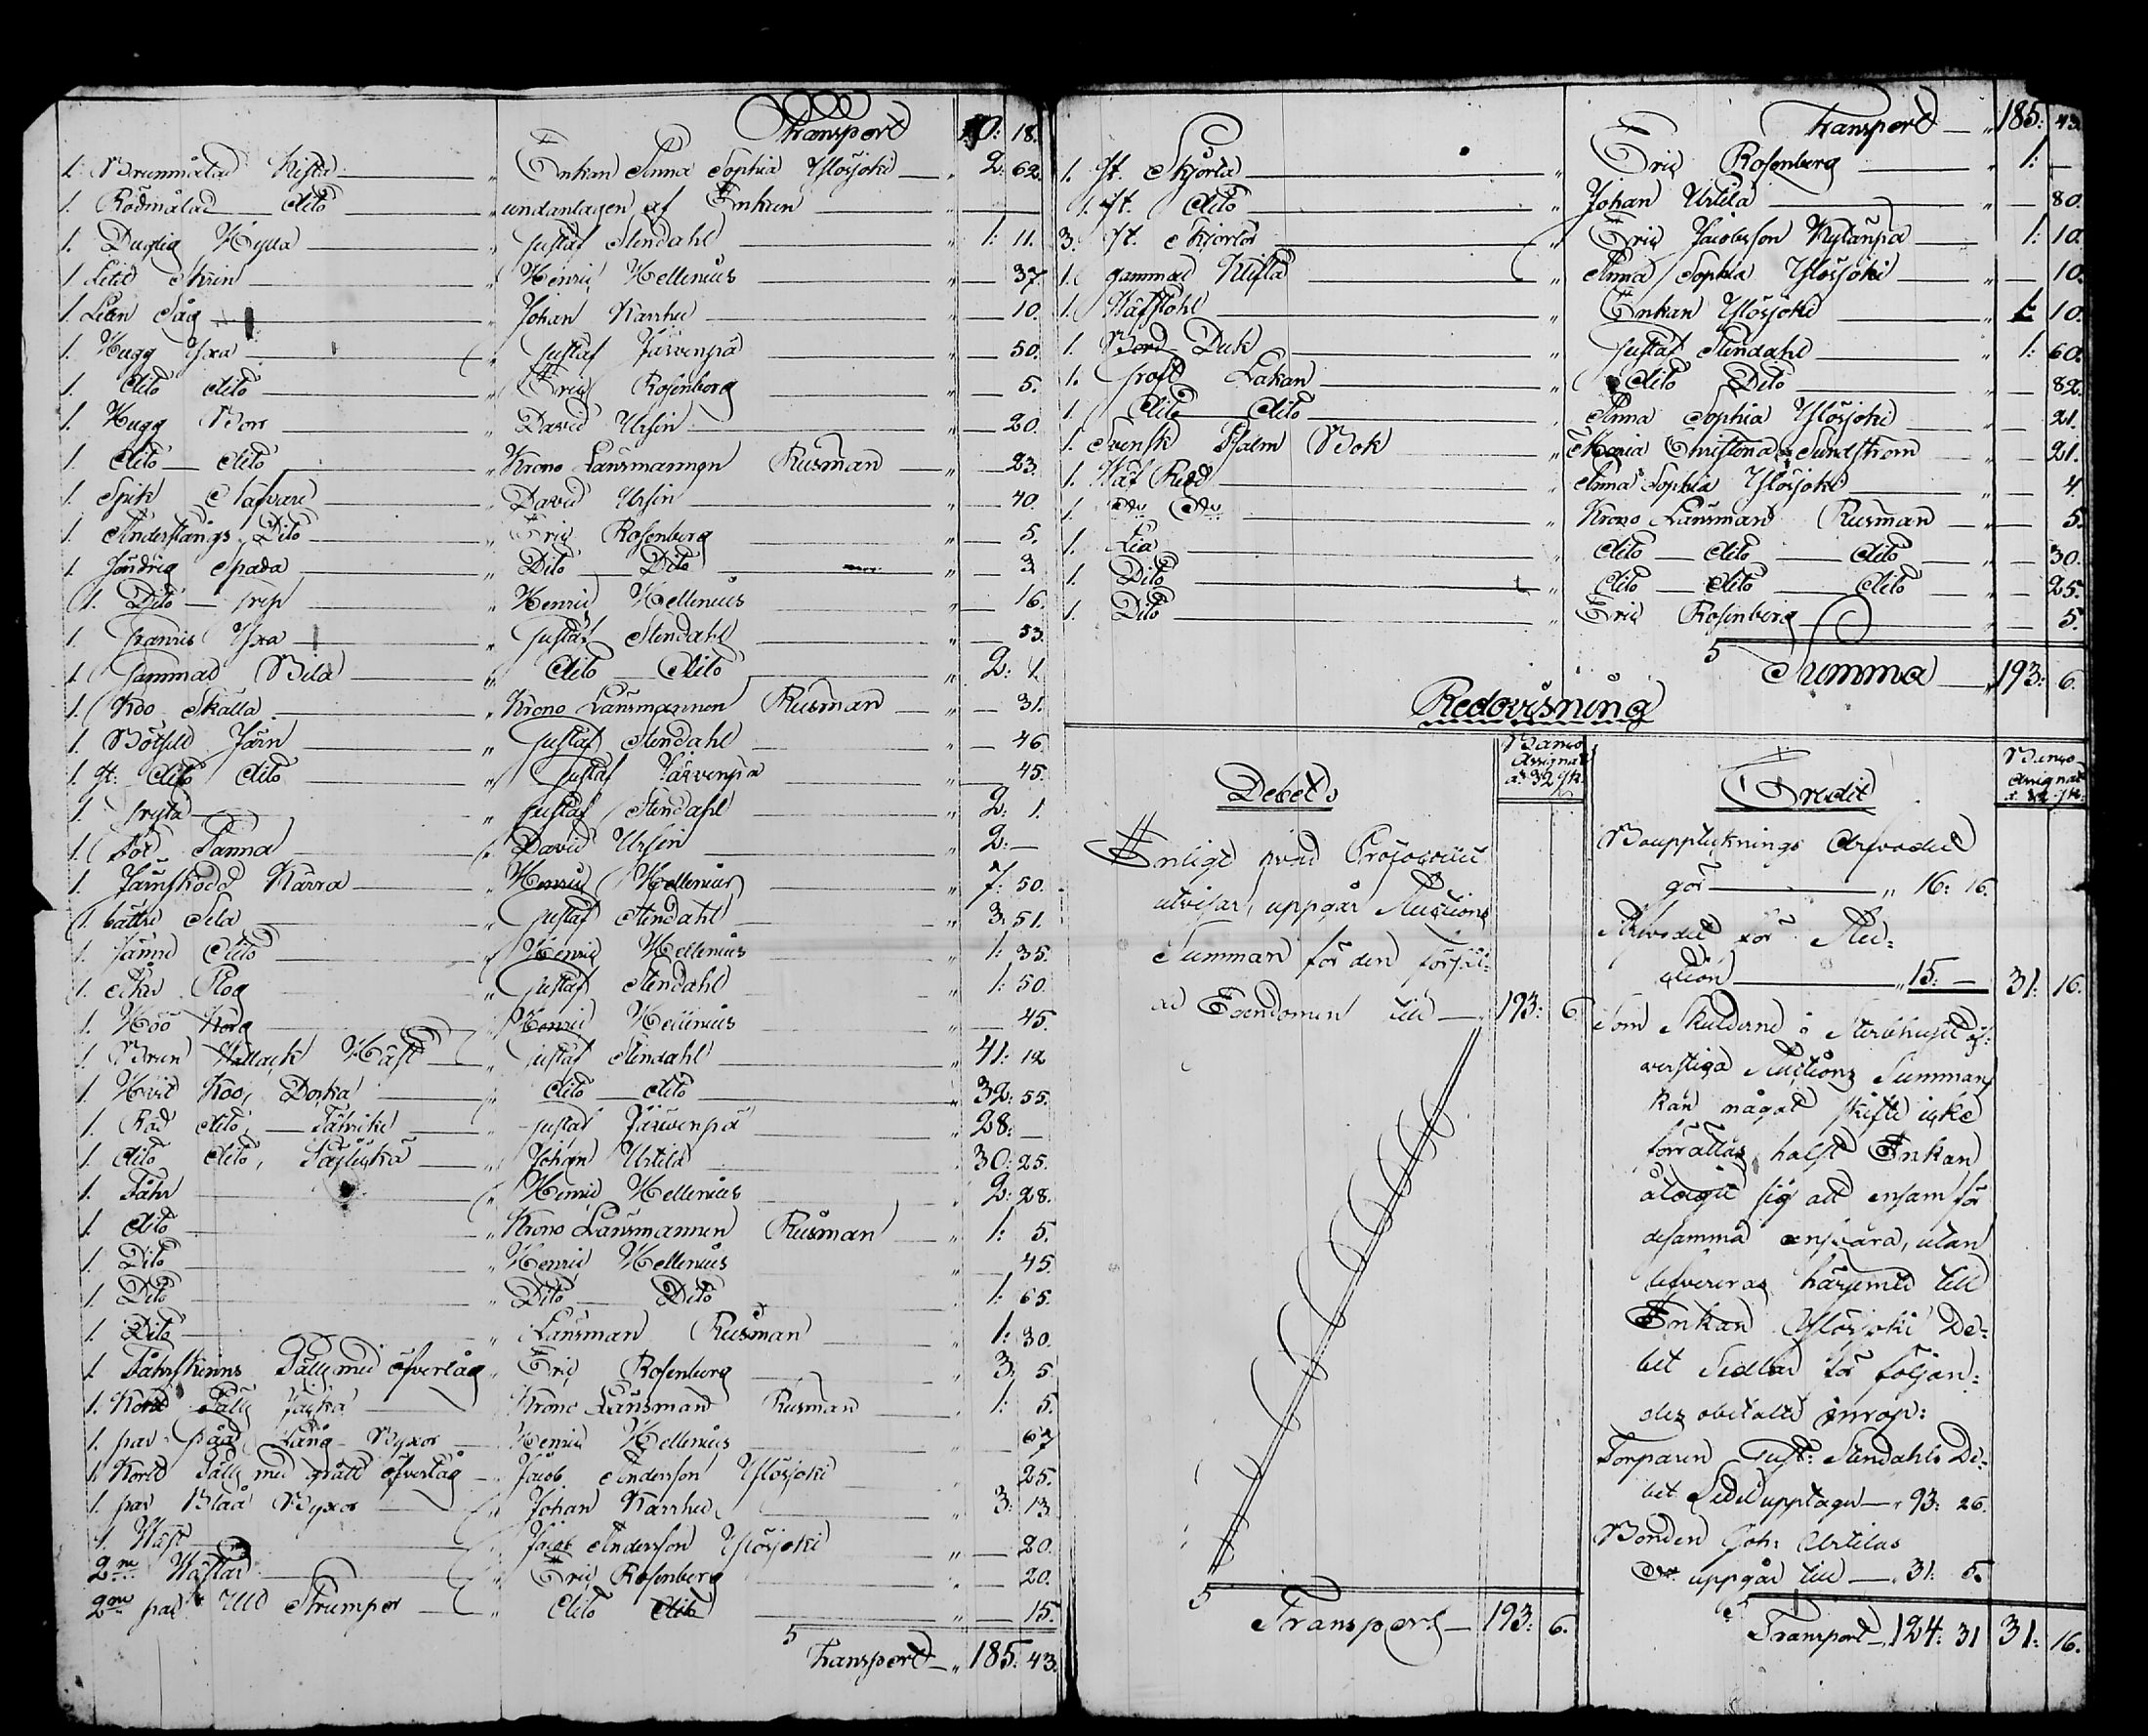 Transport 10: 18.
1. Brunmålad Kista „ Enkan Anna Sophia Ylösjoki „ 2: 62.
1. Rödmålad dito „ undantagen af Enkan „
1. Duglig Hylla „ Gustaf Stendahl „ 1: 11.
1 Litet Skrin „ Henric Hellenius „ 37.
1. Liten Såg „ Johan Karrhu „ 10.
1. Hugg Yxa „ Gustaf Järvenpä „ 50.
1. dito dito „ Eric Rosenberg „ 5.
1. Hugg Borr „ David Ursin „ 20.
1. dito dito „ Krono Länsmannen Rusman „ 23.
1. Spik Nafvare „ David Ursin „ 40.
1. Anderstångs Dito „ Eric Rosenberg „ 5.
1. Spada „ Dito Dito „ 3
1. Dito „ Henric Hellenius „ 16.
1. Yxa „ Gustaf Stendahl „ 53.
1. Gammal Bila „ dito dito „ 2: 1.
1. Koo Skälla „ Krono Länsmannen Rusman „ 31.
1. Järn „ Gustaf Stendahl „ 46
1. st: dito dito „ Gustaf Järvenpä „ 45.
1. Gryta „ Gustaf Stendahl „ 2: 1.
1. Panna „ David Ursin „ 2: —
1. Järnskodd Kärra „ Henric Hellenius „ 7: 50.
1. bättre Sela „ Gustaf Stendahl „ 3: 51.
1. sämre dito „ Henric Hellenius „ 1: 35.
1. Åker Plog „ Gustaf Stendahl „ 1: 50.
1. Höö Korg „ Henric Hellenius „ 45.
1. Brun Wallack Häst „ Gustaf Stendahl „ 41: 12
1. Hvit Koo, „ dito dito „ 32: 55.
1. Röd dito, „ Gustaf Järvenpä „ 28: —
1. dito dito, „ Johan Urtila „ 30: 25.
1. Fåhr „ Henric Hellenius „ 2: 28.
1. dito „ Krono Länsmannen Rusman „ 1: 5.
1. Dito „ Henric Hellenius „ 45.
1. Dito „ Dito Dito „ 1: 65.
1. Dito „ Länsman Rusman „ 1: 30.
1. Fåhrskinns Päls med öfverlåg „ Eric Rosenberg 3: 5.
1. Kort Päls „ Krono Länsman Rusman „ 1: 5.
1. par Lång Byxor „ Henric Hellenius „ 67
1. Kort Päls med grått öfverlåg „ Jacob Andersson Ylösjoki 25.
1. par Blåa Byxor „ Johan Karrhu „ 3: 13
1. Wäst „ Jacob Andersson Ylösjoki „ 20.
2ne Wästar „ Eric Rosenberg „ 20.
2ne par Ull Strumpor „ dito dito „ 15.
Transport „ 185: 43.
Transport „ 185: 43.
1. st. Skjorta „ Eric Rosenberg „ 1: —
1. st. dito „ Johan Urtila „ 80.
3. st. Skjortor „ Eric Jacobsson Kylänpä „ 1: 10.
1. gammal Kista „ Anna Sophia Ylösjoki „ 10.
1. Wäfstohl „ Enkan Ylösjoki „ 10.
1. Bord Duk „ Gustaf Stendahl „ 1: 60.
1. Groft Lakan „ dito Dito „ 82.
1. dito dito „ Anna Sophia Ylösjoki „ 21.
1. Svensk Psalm Bok „ Maria Christina Sundström „ 21.
1. Wäf Redd „ Anna Sophia Ylösjoki „ 4.
1. do do „ Krono Länsman Rusman „ 5.
1. Lia „ dito dito dito „ 30.
1. Dito „ dito dito dito „ 25.
1. Dito „ Eric Rosenberg „ 5.
Summa „ 193: 6.
Redovisning
Debet
Banco Assignat a 32 sk.
Enligt hvad Protocollet
utvisar, uppgår Auctions
Summan för den försål=
da Egendomen till „ 193: 6.
Transport 193: 6.
Credit
Banco Assignat a 32 sk.
Bouppteknings Arfvodet
gör „ 16: 16.
Arfvodet för Auc=
tion „ 15: — 31: 16.
Som Skulderne i Sterbhuset öf=
verstiga Auctions Summan
kan något skifte icke
förrättas, hälst Enkan
åtagit sig att ensam för
desamma ansvara, utan
lefvereras härmed till
Enkan Ylösjoki De=
bet Sedlar för följan=
des obetalte inrop:
Torparen Gust: Stendahls De=
bet Sedel upptager „ 93: 26.
Bonden Joh: Urtilas
Do uppgår till „ 31: 5.
Transport „ 124: 31 31: 16.